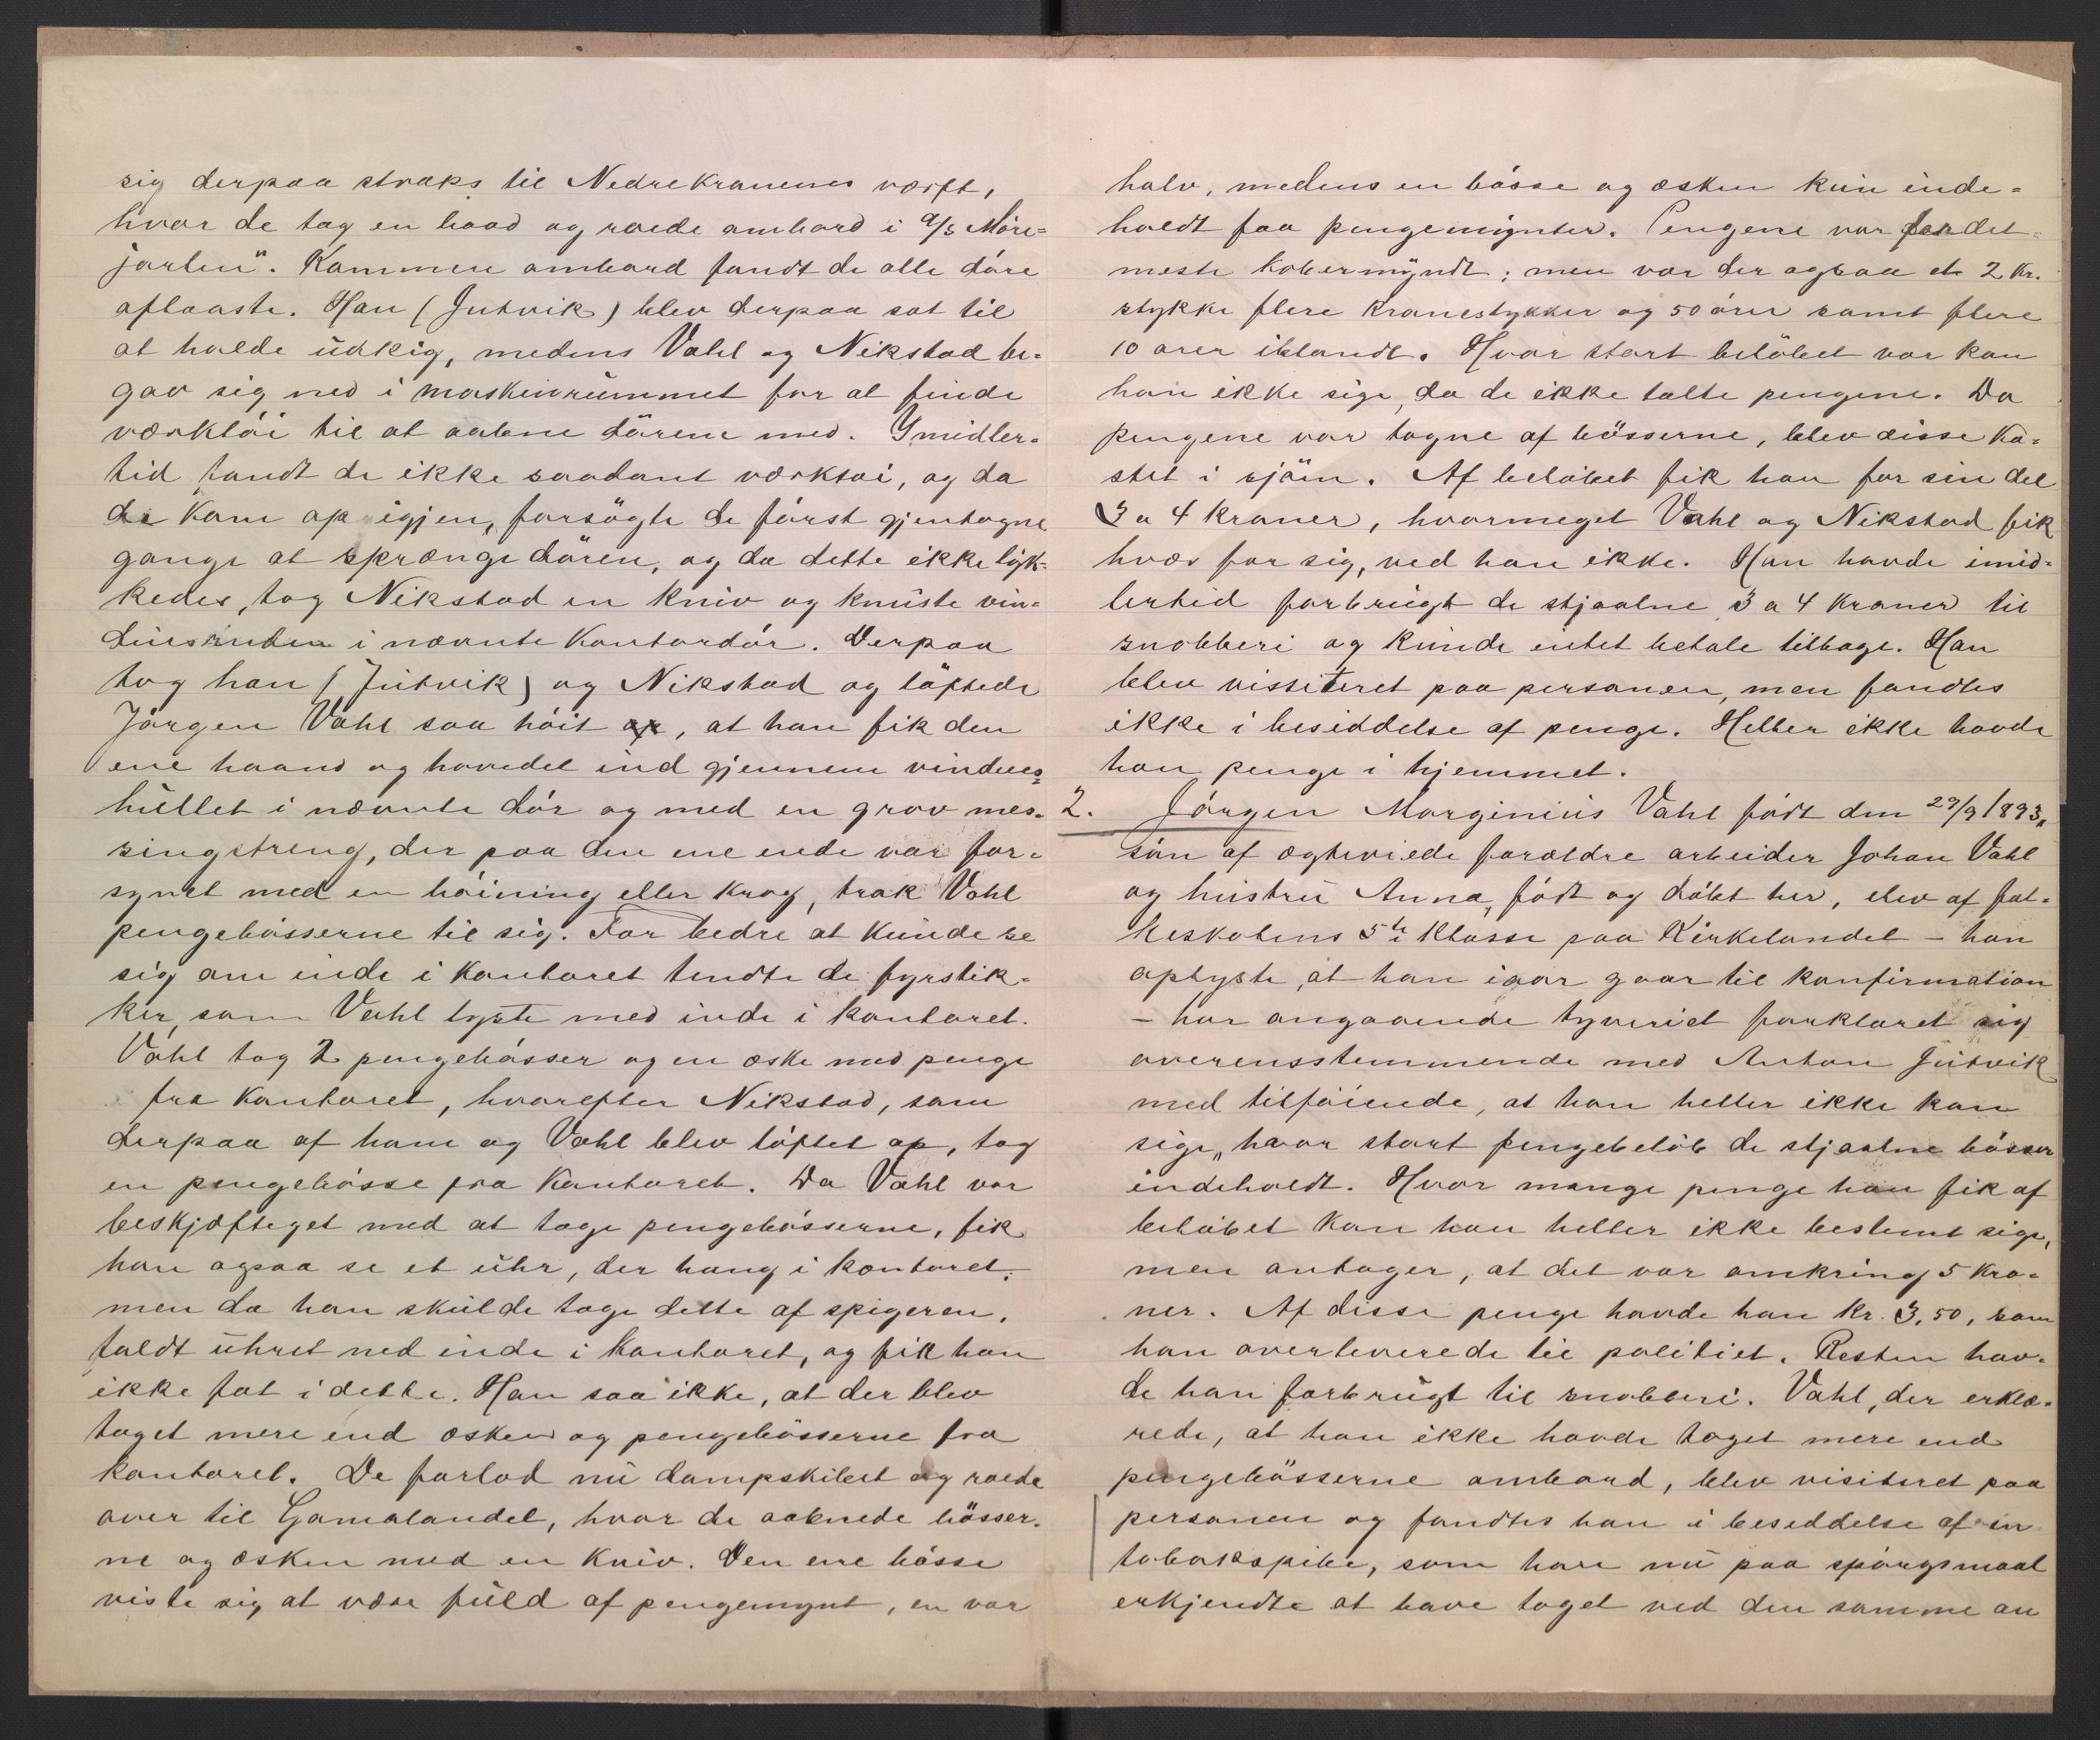 sig derpaa straks til Nedrekranenes værft,
hvor de tog en baad og roede ambord i d/s Möre=
jarlen". Kommen ombord fandt de alle döre
aflaaste. Han (Jutvik) blev derpaa sat til
at holde udkig, medens Vahl og Nikstad be=
gav sig ned i maskinrummet for at finde
værktöi til at aabne dörene med. Ymidler=
tid fandt de ikke saadant værktöi, og da
de kom op igjen, forsögte de först gjentagne
gange at sprænge dören, og da dette ikke lyk=
kedes, tog Nikstad en kniv og knuste vin=
duesruden i nævnte kontordör. Derpaa
tog han (Jutvik) og Nikstad og löftede
Jörgen Vahl saa höit op, at han fik den
ene haand og hovedet ind gjennem vindues=
hullet i nævnte dör og med en grov mes=
singstreng, der paa den ene ende var for=
synet med en böining eller krog, trak Vahl
pengebösserne til sig. For bedre at kunde se
sig om inde i kontoret tendte de fyrstik=
ker, som Vahl lyste med inde i kontoret.
Vahl tog 2 pengebösser og en æske med penge
fra kontoret, hvorefter Nikstad, som
derpaa af ham og Vahl blev löftet op, tog
en pengebösse fra kontoret. Da Vahl var
beskjæftiget med at tage pengebösserne, fik
han ogsaa se et uhr, der hang i kontoret,
men da han skulde tage dette af spigeren,
faldt uhret ned inde i kontoret, og fik han
ikke fat i dette. Han saa ikke, at der blev
taget mere end æsken og pengebösserne fra
kontoret. De forlod nu dampskibet og roede
over til Gomalandet, hvor de aabnede bösser=
ne og æsken med en kniv. Den ene bösse
viste sig at være fuld af pengemynt, en var
halv, medens en bösse og æsken kun inde=
holdt faa pengemynter. Pengene var for det=
meste kobermyndt; men var der ogsaa et 2 Kr.
stykke flere kronestykker og 50 örer samt flere
10 örer iblandt. Hvor stort belöbet var kan
han ikke sige, da de ikke talte pengene. Da
pengene var tagne af bösserne, blev disse ka=
stet i sjöen. Af belöbet fik han for sin del
3 a 4 kroner, hvormeget Vahl og Nikstad fik
hver for sig, ved han ikke. Han havde imid=
lertid forbrugt de stjaalne 3 a 4 kroner til
snobberi og kunde intet betale tilbage. Han
blev vissiteret paa personen, men fandtes
ikke i besiddelse af penge. Heller ikke havde
han penge i hjemmet.
2. Jörgen Marginius Vahl födt den 29/9 1893,
sön af ægteviede forældre arbeider Johan Vahl
og hustru Anna, födt og döbt her, elev af fol=
keskolens 5te klasse paa Kirkelandet - han
oplyste, at han iaar gaar til konfirmation
- har angaaende tyveriet forklaret sig
overensstemmende med Anton Jutvik
med tilföiende, at han heller ikke kan
sige, hvor stort pengebelöb de stjaalne bösser
indeholdt. Hvor mange penge han fik af
belöbet kan han heller ikke bestemt sige,
men antager, at det var omkring 5 kro=
ner. Af disse penge havde han kr. 3,50, som
han overleverede til politiet. Resten hav=
de han forbrugt til snobberi. Vahl, der erklæ=
rede, at han ikke havde taget mere end
pengebösserne ombord, blev visiteret paa
personen og fandtes han i besiddelse af en
tobakspibe, som han nu paa spörgsmaal
erkjendte at have taget ved den samme an